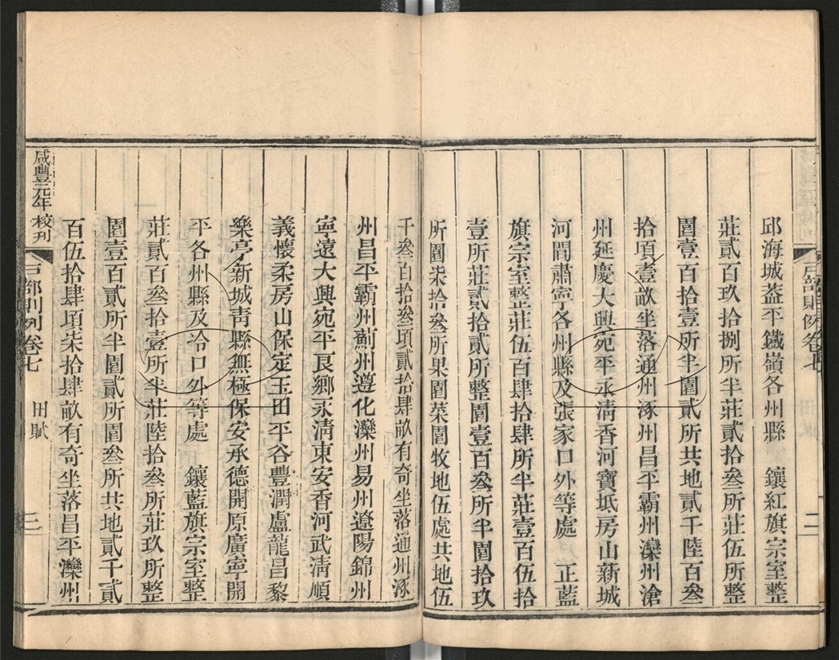 邱海城蓋平鐵嶺各州縣　鑲紅旗宗室整
莊貳百壹拾捌所半莊貳拾叄所莊伍所整
園壹百拾壹所半園貳所共地貳千陸百叄
拾頃壹畝坐落通州涿州昌平霸州灤州滄
州延慶大興宛平永清香河寶坻房山新城
河間肅寧各州縣及張家口外等處　正藍
旗宗室整莊伍百肆拾肆所半莊壹百伍拾
壹所莊貳拾貳所整園壹百叄所半園拾玖
所園柒拾叄所果園菜園牧地伍處共地伍
千叄百拾叄頃貳拾肆畝有奇坐落通州涿
州昌平霸州薊州遵化灤州易州遼陽錦州
寧遠大興宛平良鄉永清東安香河武清順
義懷柔房山保定玉田平谷豐潤盧龍昌黎
樂亭新城青縣無極保安承德開原廣寧開
平各州縣及冷口外等處　鑲藍旗宗室整
莊貳百叄拾壹所半莊陸拾叄所莊玖所整
園壹百貳所半園貳所園叄所共地貳千貳
百伍拾肆頃柒拾肆畝有奇坐落昌平灤州
咸豐元年校刊
戶部則例卷七
田賦
三
戶部則例卷七
二